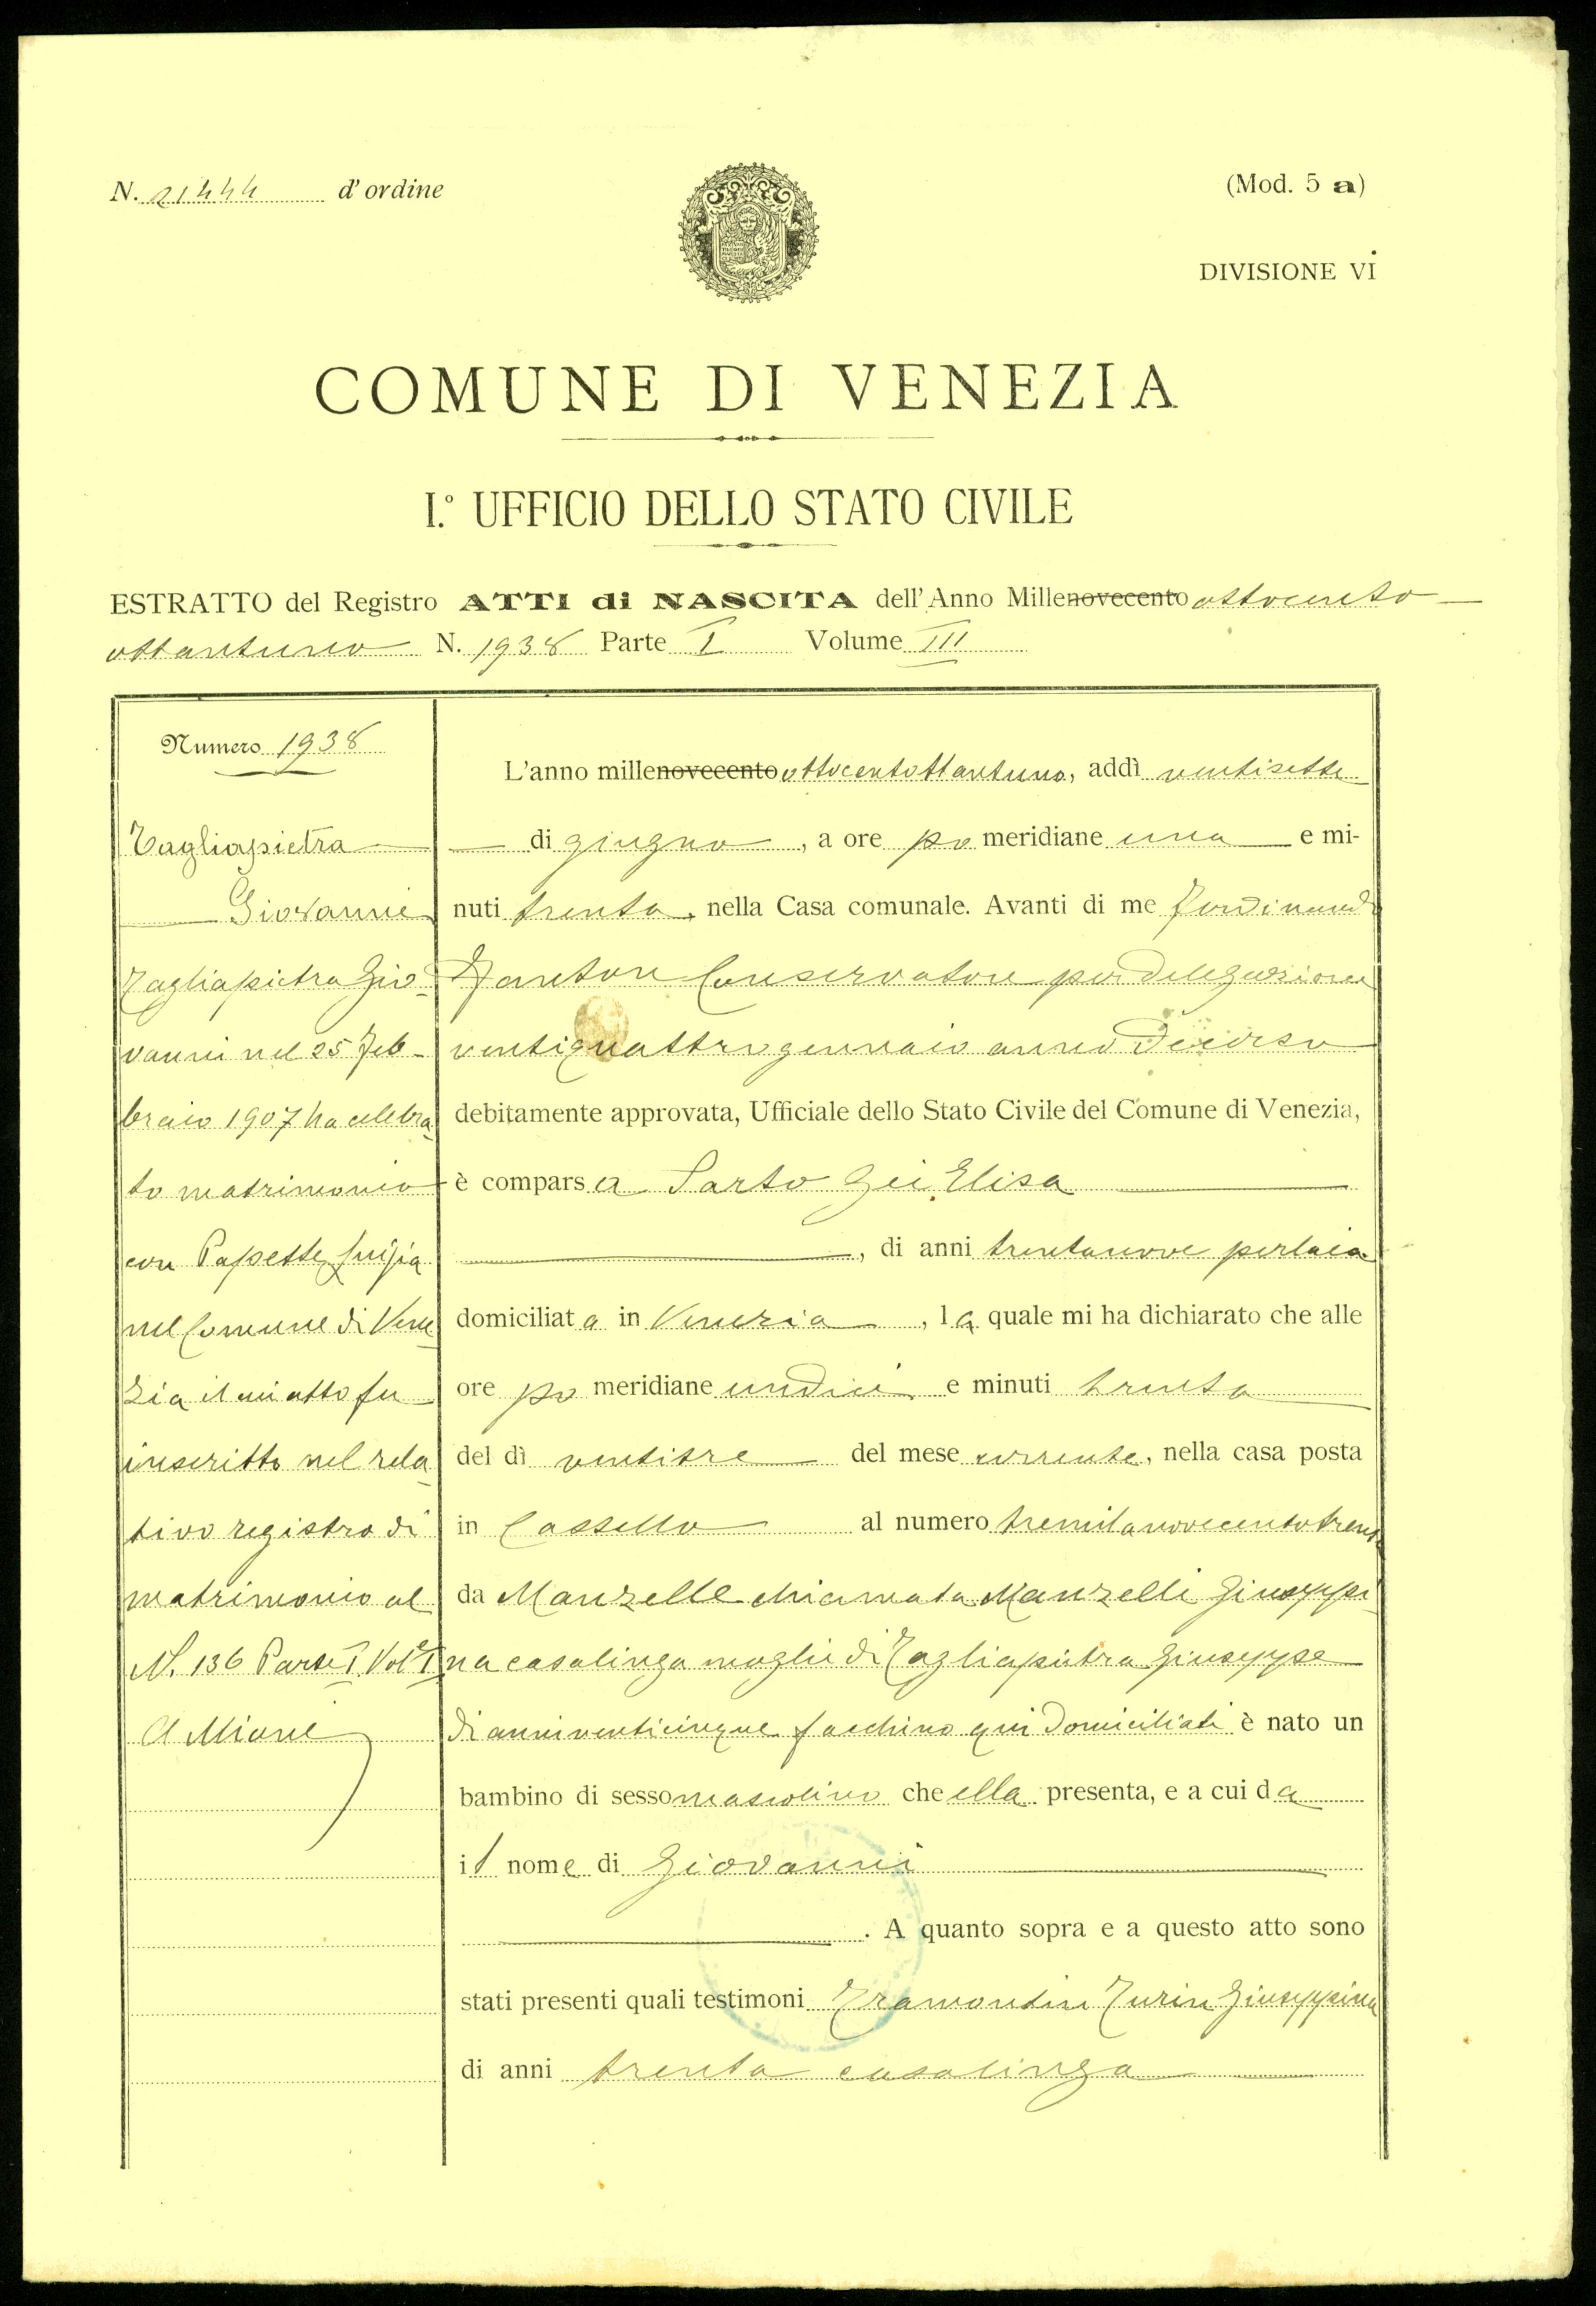 N. 21444 d'ordine
(Mod. 5 a)
DIVISIONE VI
COMUNE DI VENEZIA
I.° UFFICIO DELLO STATO CIVILE
ESTRATTO del Registro ATTI di NASCITA dell'Anno Millenovecento ottocento
ottantuno N. 1938 Parte I Volume III
Numero 1938
Tagliapietra
Giovanni
Tagliapietra Gio-
vanni nel 25 Feb-
braio 1907 ha celebra-
to matrimonio
con Papette Luigia
nel Comune di Vene-
zia il cui atto fu
inscritto nel rela-
tivo registro di
matrimonio al
N. 136 Parte I Vol I
A Miani
L'anno millenovecento ottocentottantuno, addì ventisette
di giugno, a ore pomeridiane una e mi-
nuti trenta, nella Casa comunale. Avanti di me Ferdinando
Conservatore per delegazione
ventiquattro gennaio anno decorso
debitamente approvata, Ufficiale dello Stato Civile del Comune di Venezia,
è comparsa Sarto Gei Elisa
, di anni trentanove perlaia
domiciliata in Venezia, la quale mi ha dichiarato che alle
ore pomeridiane undici e minuti trenta
del dì ventitre del mese corrente, nella casa posta
in Castello al numero tremilanovecentotrenta
da Manzelle chiamata Manzelli Giuseppi-
na casalinga moglie di Tagliapietra Giuseppe
di anni venticinque facchino qui domiciliati è nato un
bambino di sesso mascolino che ella presenta, e a cui da
il nome di Giovanni
. A quanto sopra e a questo atto sono
stati presenti quali testimoni Tramontin Turin Giuseppina
di anni trenta casalinga